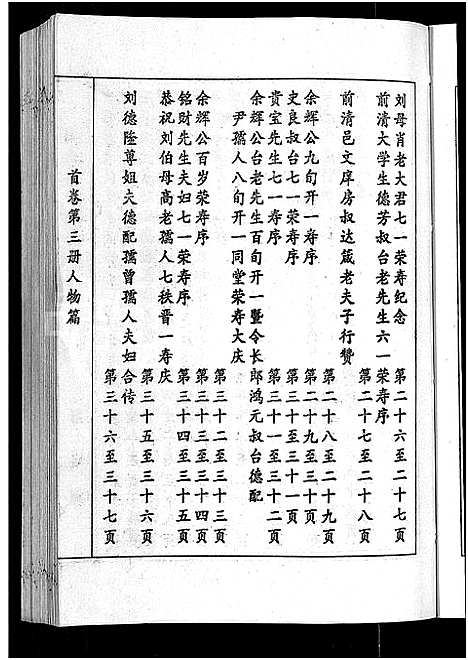 刘母肖老大君七一荣寿纪念 第二十六至二十七页
前清大学生德芳叔台老先生六一荣寿序 第二十七至二十八页
前清邑文庠房叔达箴老夫子行赞 第二十八至二十九页
余辉公九旬开一寿序 第二十九至三十页
史良叔台七一荣寿序 第三十至三十一页
贵宝先生七一寿序 第三十一至三十二页
余辉公台老先生百旬开一暨令长郎鸿元叔台德配
尹孺人八旬开一同堂荣寿大庆 第三十二至三十三页
余辉公百岁荣寿序 第三十三至三十四页
铭财先生夫妇七一荣寿序 第三十四至三十五页
恭祝刘伯母高老孺人七秩晋一寿庆 第三十五至三十六页
刘德隆尊姐夫德配孺曾孺人夫妇合传 第三十六至三十七页
首卷第三册人物篇